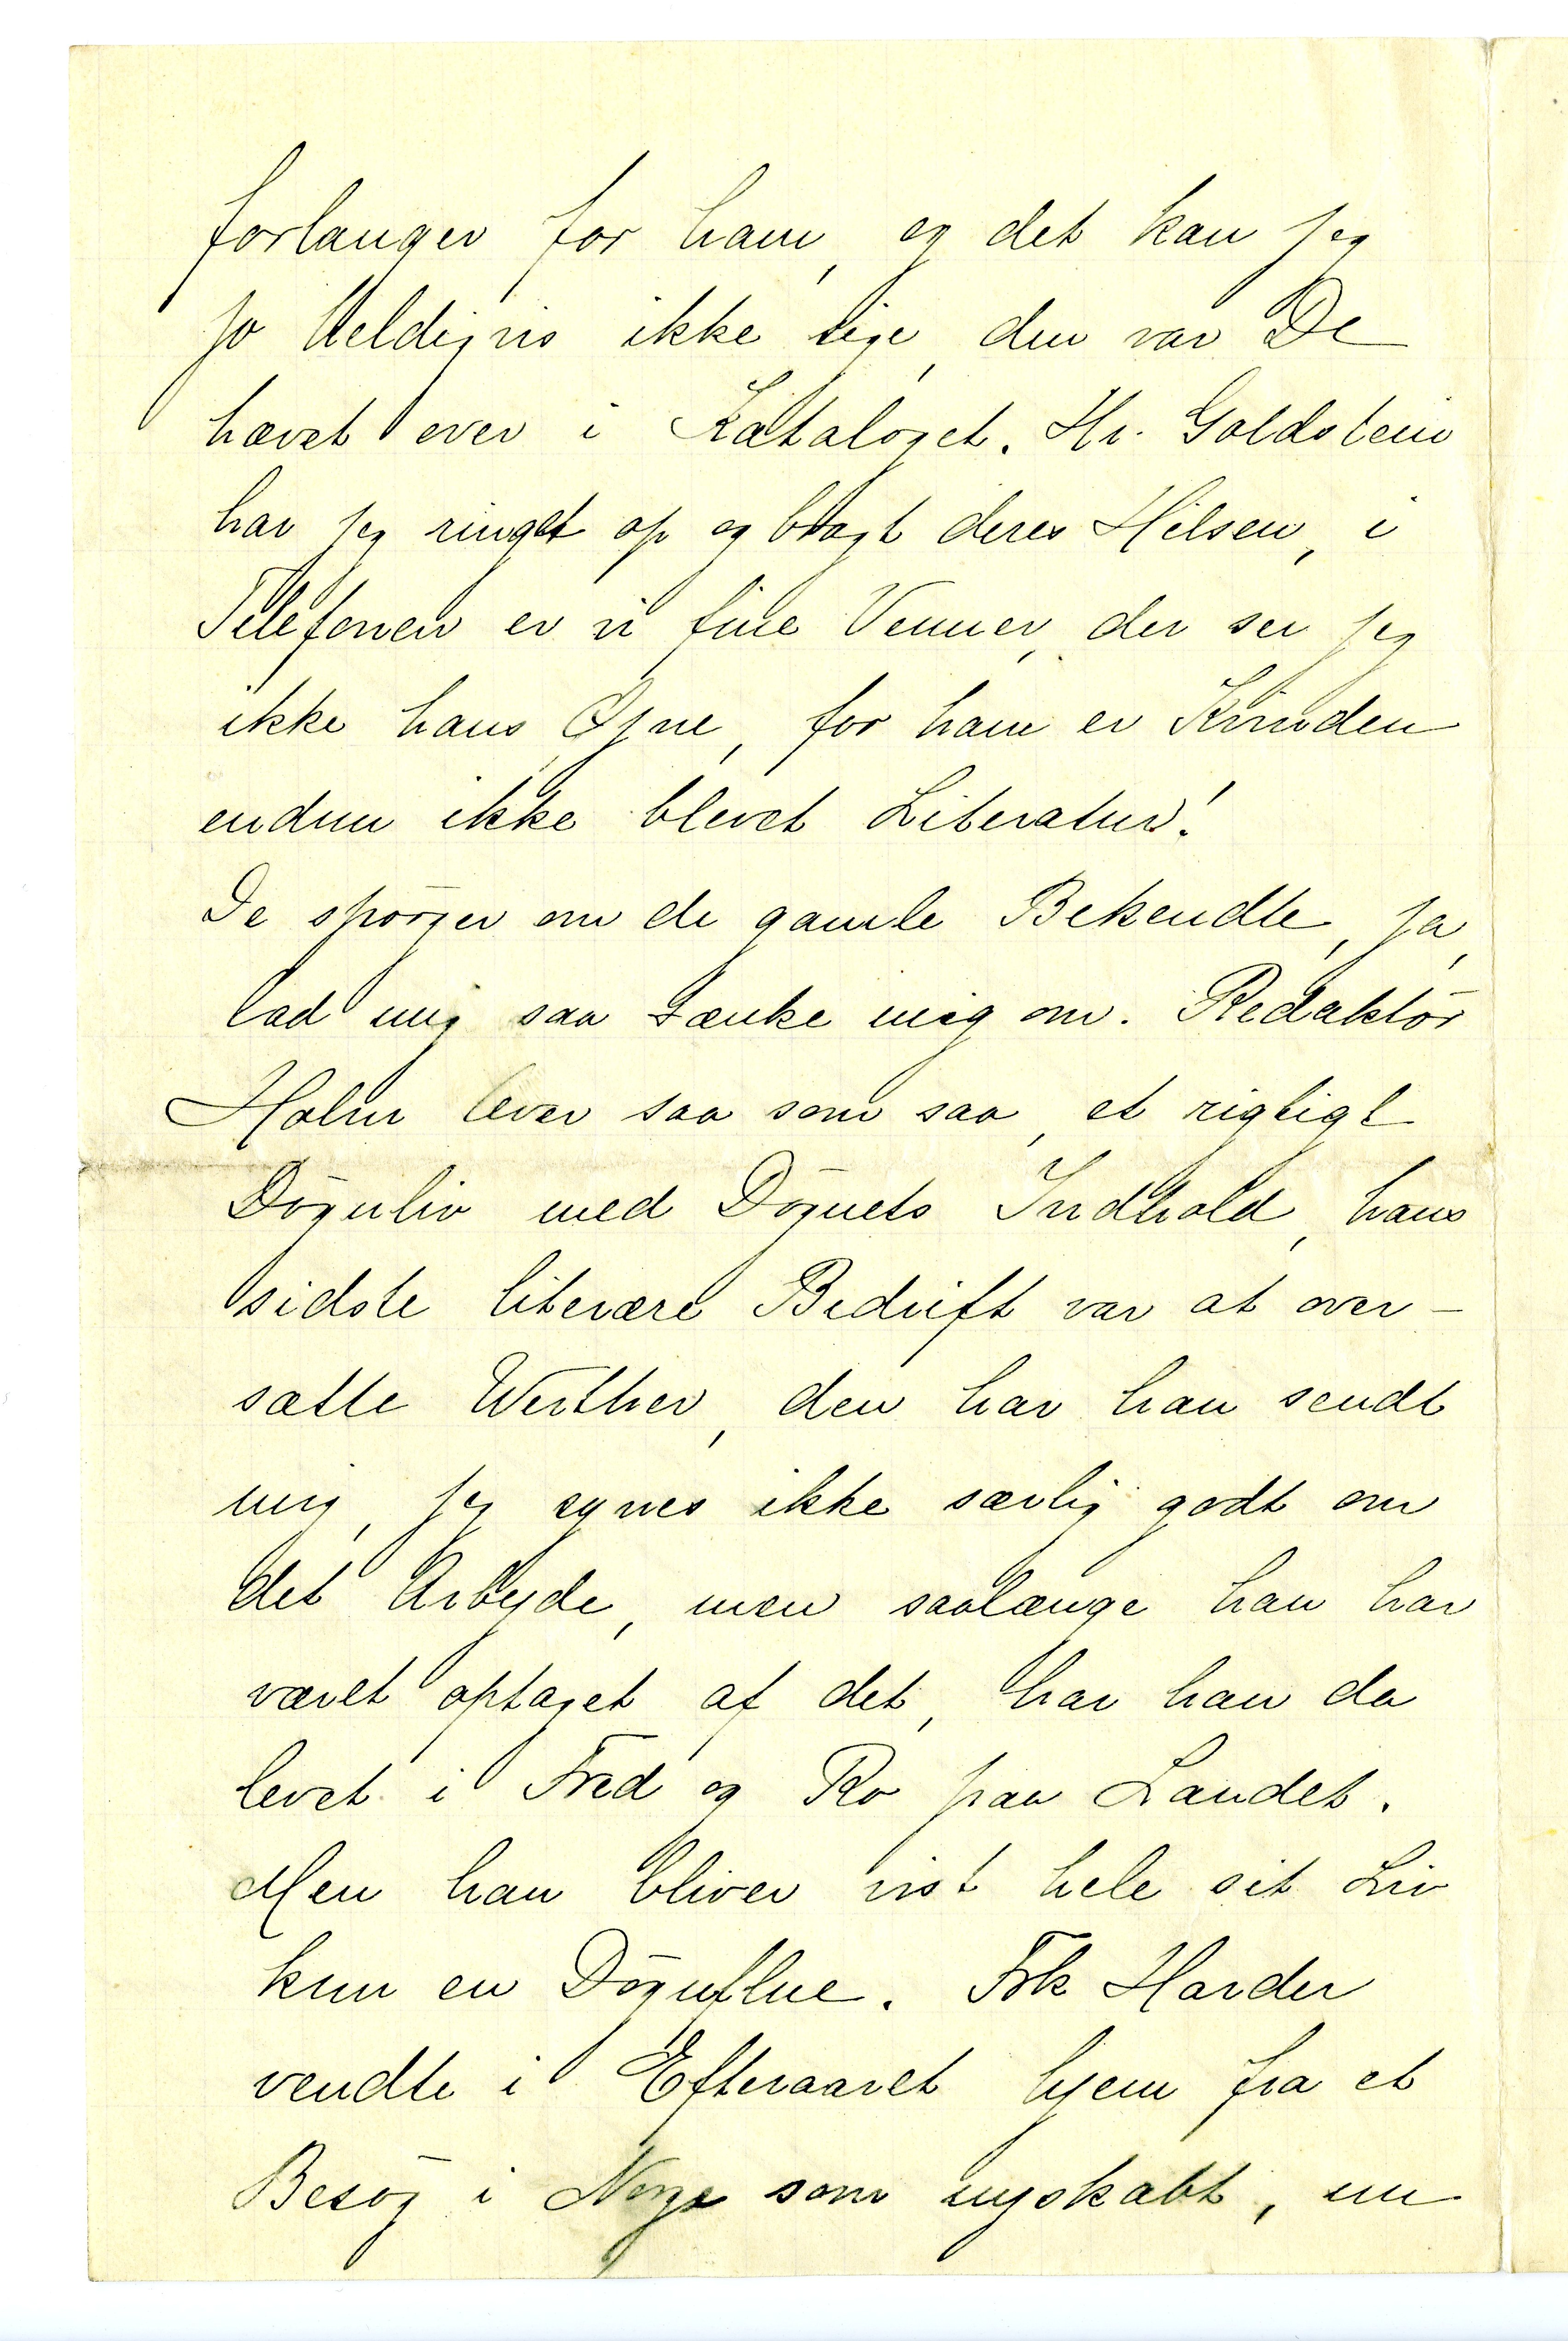 forlanger for ham, og det kan jeg
jo heldigvis ikke sige, den var De
hævet over i Kataloget. Hr. Goldstein
har jeg ringet op og bragt deres Hilsen, i
Telefonen er vi fine Venner, der ser jeg
ikke hans Øjne, for ham er Kvinden
endnu ikke blevet Literatur!
De spörger om de gamle Bekendte, ja,
lad mig saa tænke mig om. Redaktör
Holm lever saa som saa, et rigtigt
Dögnliv med Dögnets Indhold, hans
sidste literære Bedrift var at over-
sætte Werther, den har han sendt
mig, jeg synes ikke særlig godt om
det Arbejde, men saalænge han har
været optaget af det, har han da
levet i Fred og Ro paa Landet.
Men han bliver vist hele sit Liv
kun en Dögnflue. Frk Harder
vendte i Efteraaret hjem fra et
Besög i Norge som nyskabt, nu